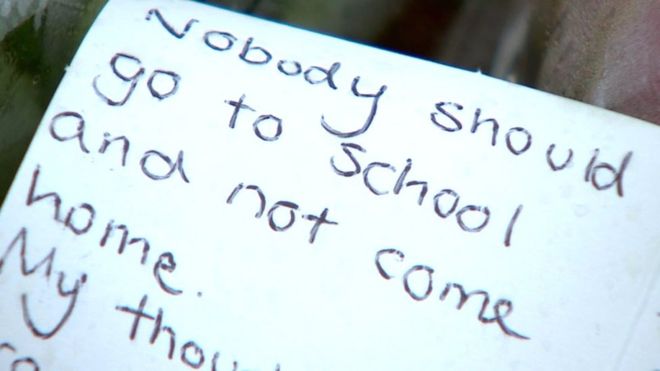 Nobody should
go to school
and not come
home.
My